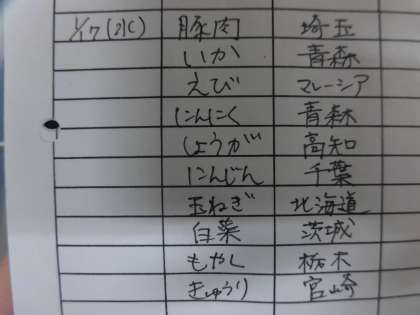 1/17(水) 豚肉 埼玉
いか 青森
えび マレーシア
にんにく 青森
しょうが 高知
にんじん 千葉
玉ねぎ 北海道
白菜 茨城
もやし 栃木
きゅうり 宮崎